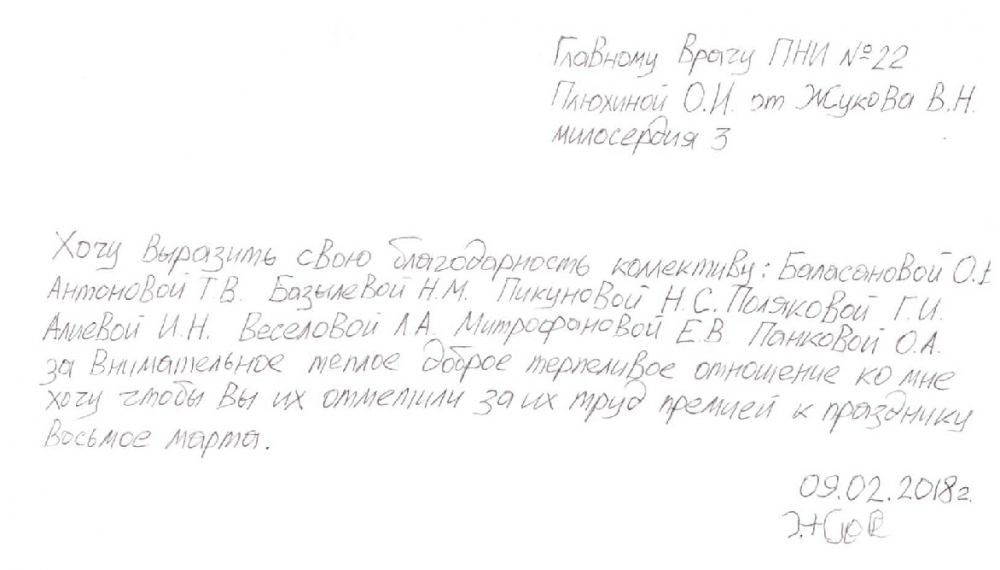 Главному врачу ПНИ №22
Плюхиной О.И. от Жукова В.Н.
милосердия 3
Хочу выразить свою благодарность колективу: Баласановой О.
Антоновой Т.В. Базылевой Н.М. Пикуновой Н.С. Поляковой Г.И.
Алиевой И.Н. Веселовой Л.А. Митрофановой Е.В. Панковой О.А.
за внимательное теплое доброе терпеливое отношение ко мне
хочу чтобы Вы их отметили за их труд премией к празднику
Восьмое марта.
09.02.2018г.